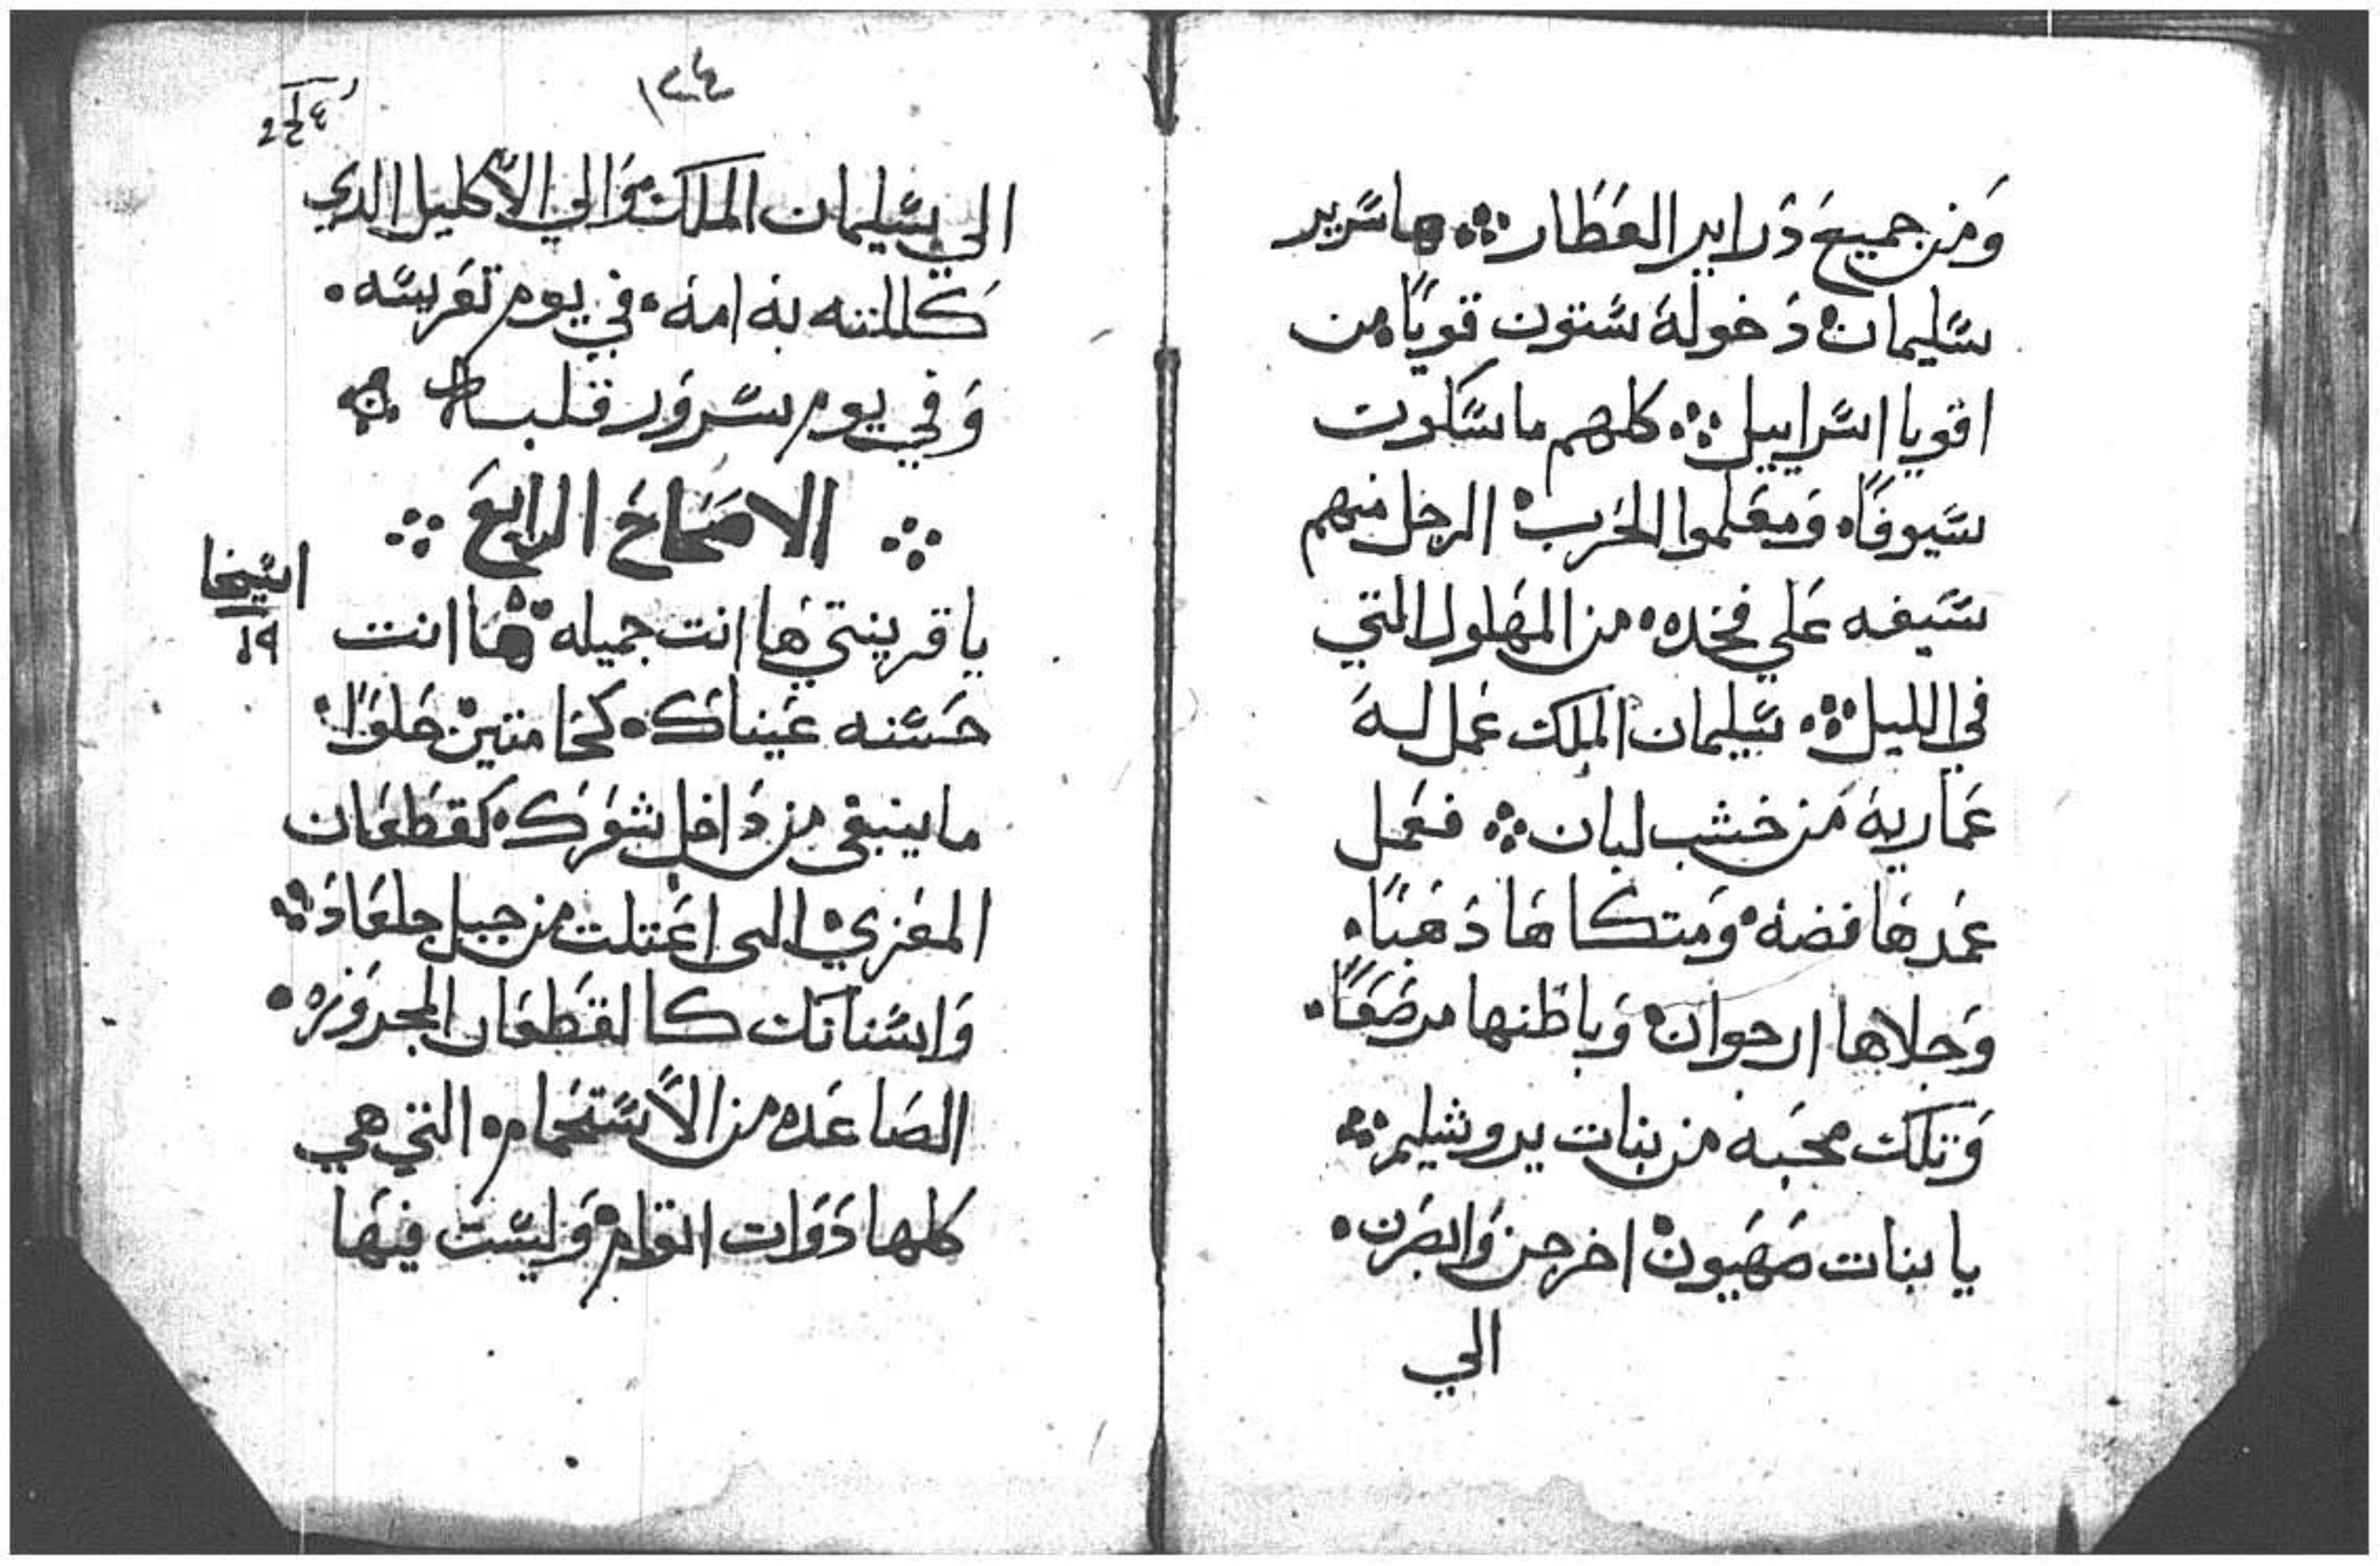 وَمن جميع دَراير العَطَار ܀ ها سَرير
سَليمان دَخوله سَتون قويًا من
اقويا اسَراييل ܀ كلهم ماسَكون
سَيوفًا وَمعَلموا الحَرب الرجل منهم
سَيفه عَلي فخده من المهلول التي
في الليل ܀ سَليمان الملك عَمل له
عَماريه مَن خشب لبان ܀ فعَمل
عَمدهَا فضه وَمتكاهَا دَهَبًا
وَجلاها ارجوان وَباطنها مرصَعًا
وَتلك محَبه من بنات يروشليم ܀
يا بنات صَهَيون اخرجن وَابصَرن
الي
١٣٤
الي سَليمان الملك وَالي الاكليل الدي
كَللته به امه في يوم تعَريسَه
وَفي يوم سَروَر قلبه ܀
܀ الاصَحَاحَ الرابعَ ܀
يا قرينتي هَا انت جميله هَا انت
حَسَنه عَيناكَ كحَامتين حَلوًا
ما ينبغي من دَاخل شعَركَ كقطَعَان
المعَزي التى اعَتلت من جبل جلعَادَ ܀
وَاسَنانَك كالقطَعَان المجزوَزه
الصَاعَده من الاسَتحَمام التي هي
كلها دَوَات اتوام وَليسَت فيهَا
اسَيخا
١٩